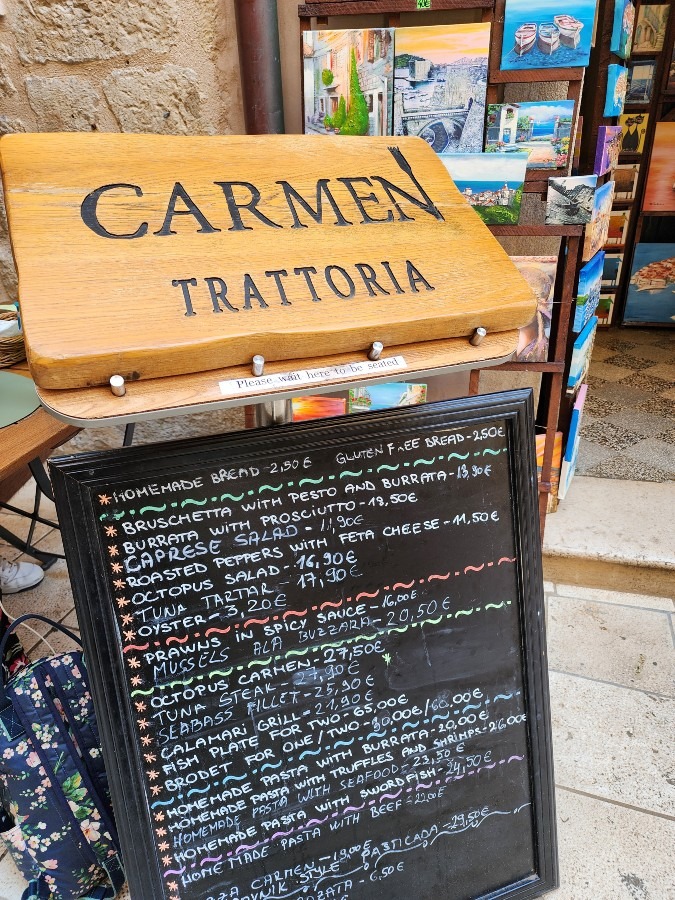 CARMEN
TRATTORIA
Please wait here to be seated
HOMEMADE BREAD - 2,50€ GLUTEN FREE BREAD - 2,50€
BRUSCHETTA WITH PESTO AND BURRATA - 13,90€
BURRATA WITH PROSCIUTTO - 18,50€
CAPRESE SALAD - 11,90€
ROASTED PEPPERS WITH FETA CHEESE - 11,50€
OCTOPUS SALAD - 16,90€
TUNA TARTAR - 17,90€
OYSTER - 3,20€
PRAWNS IN SPICY SAUCE - 16,00€
MUSSELS ALA BUZZARA - 20,50€
OCTOPUS CARMEN - 27,50€
TUNA STEAK - 27,90€
SEABASS FILLET - 25,90€
CALAMARI GRILL - 21,90€
FISH PLATE FOR TWO - 65,00€
BRODET FOR ONE/TWO - 30,00€/60,00€
HOMEMADE PASTA WITH BURRATA - 20,00€
HOMEMADE PASTA WITH TRUFFLES AND SHRIMPS - 26,00€
HOMEMADE PASTA WITH SEAFOOD - 23,50€
HOMEMADE PASTA WITH SWORDFISH - 24,50€
HOMEMADE PASTA WITH BEEF - 22,00€
CARMEN - 19,00€
STYLE PASTICADA - 29,50€
6,50€